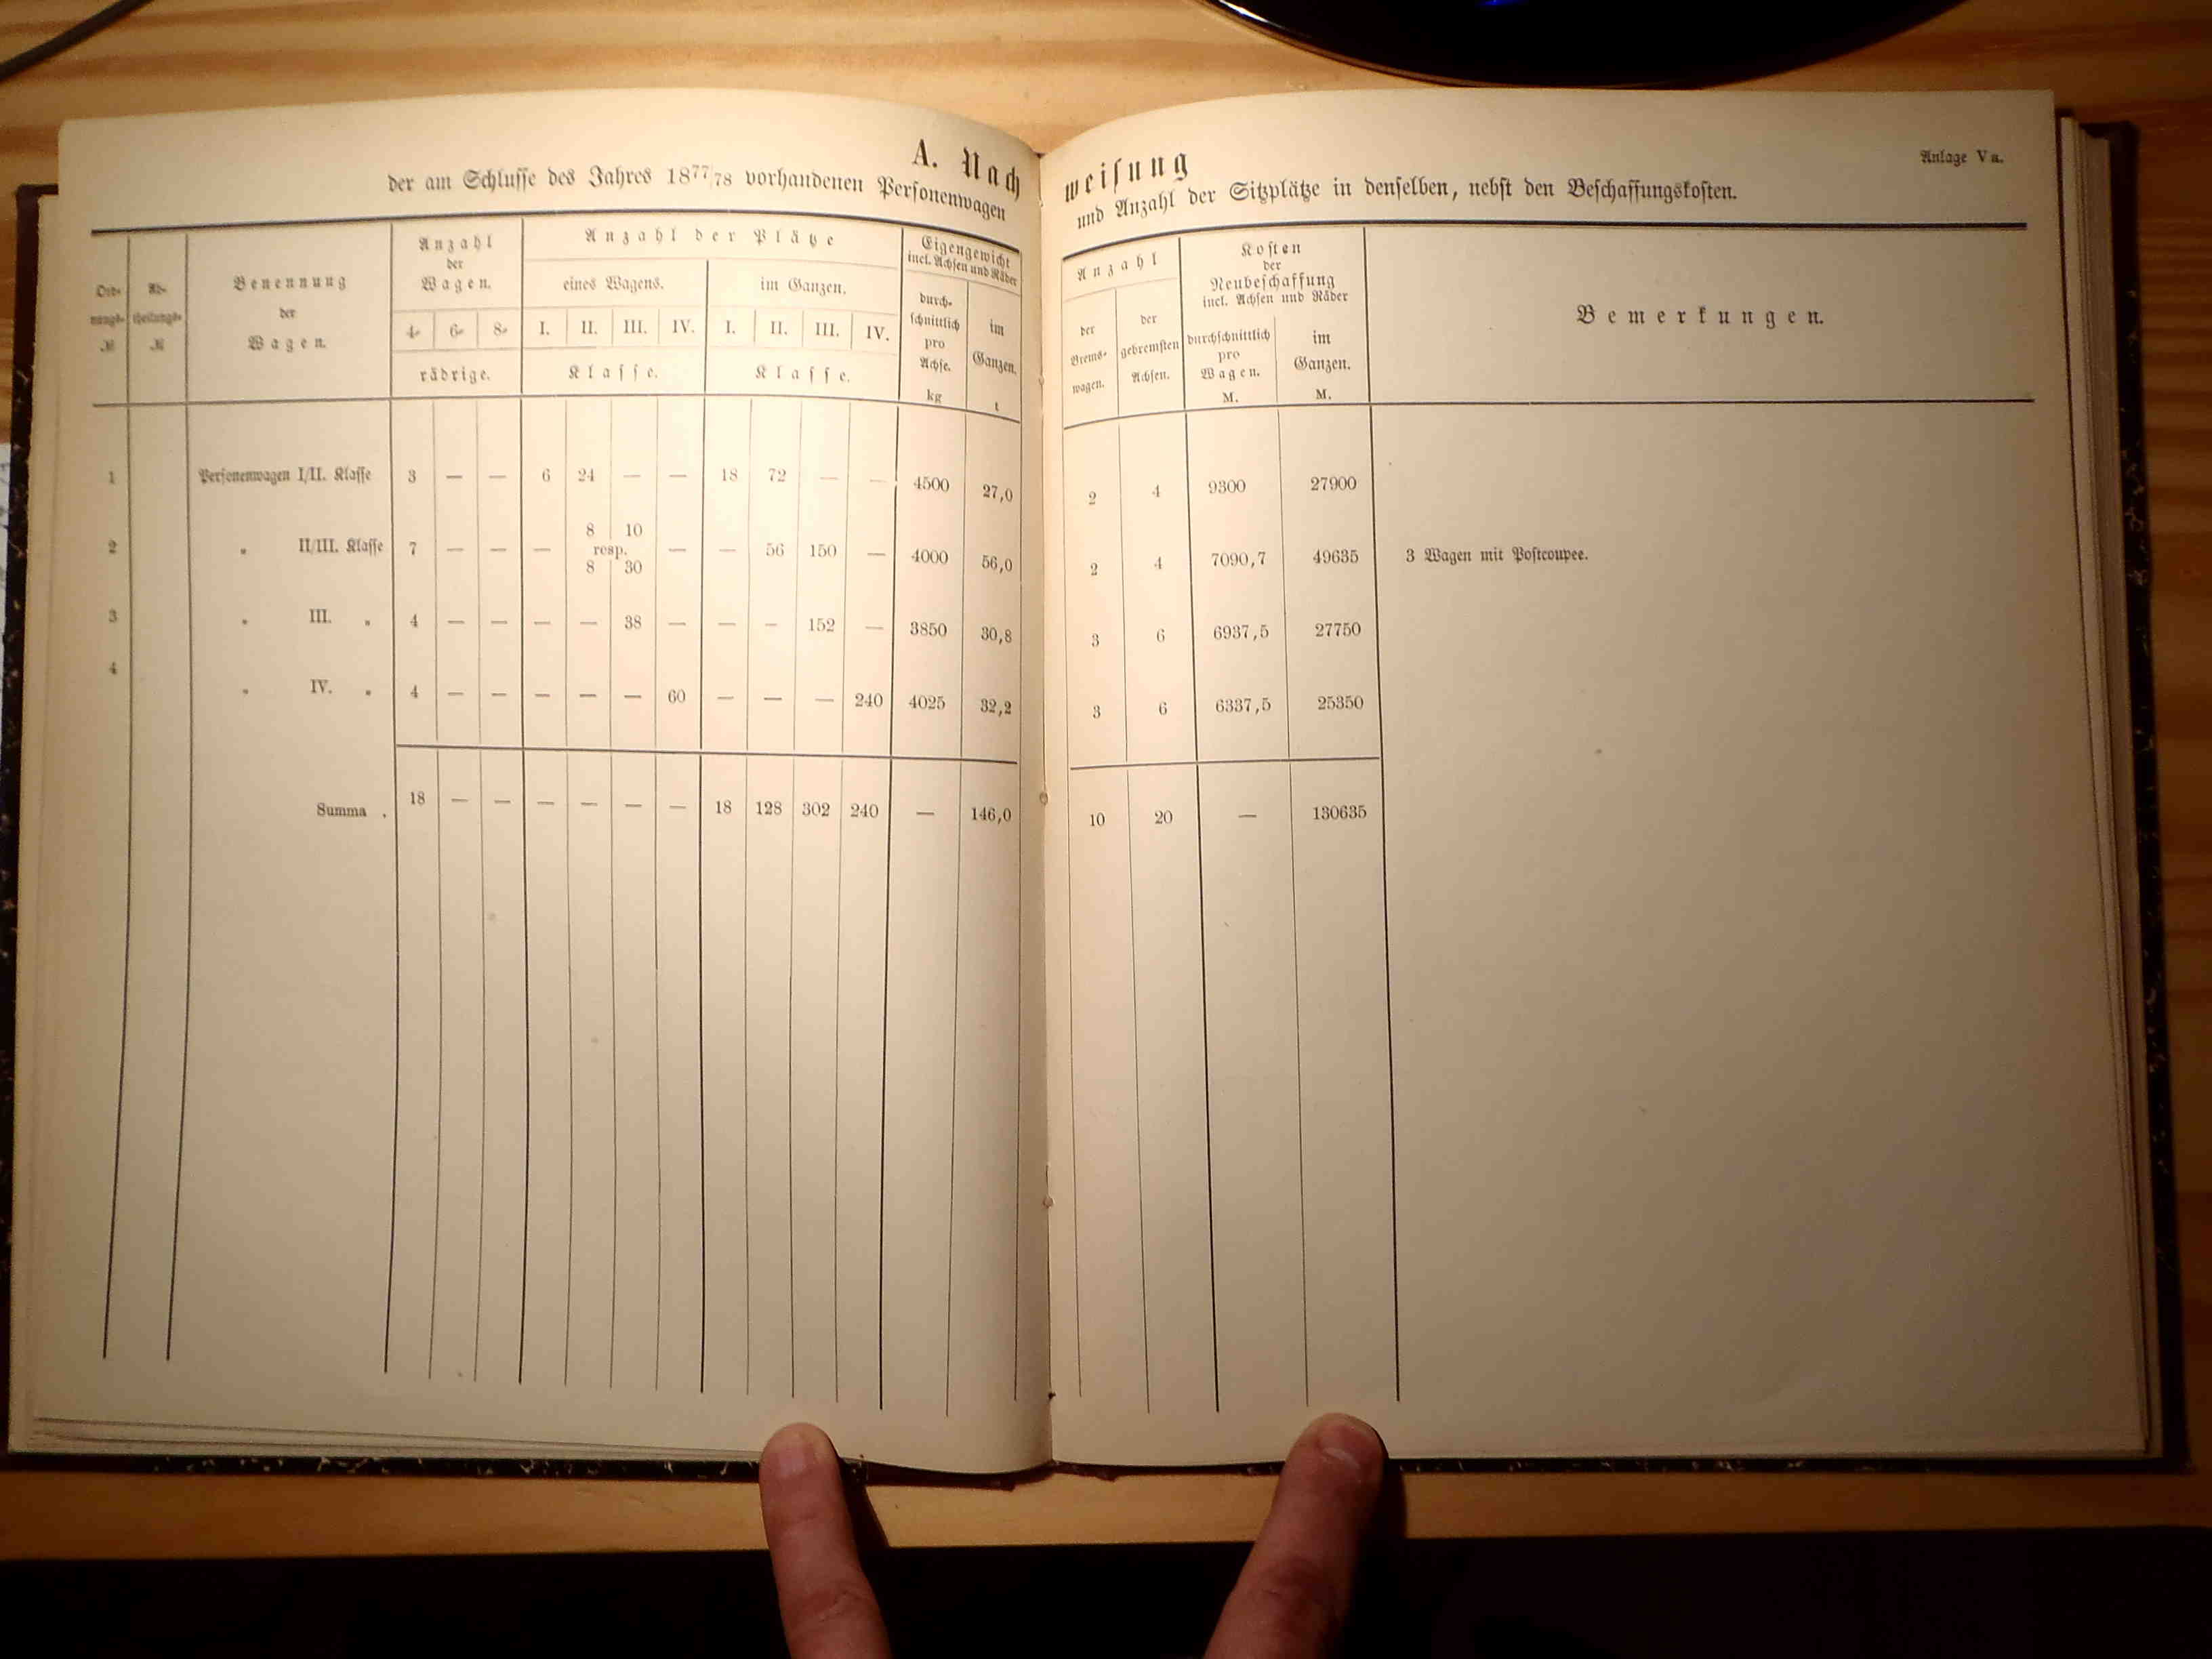 A. Nachweisung
Anlage Va.
der am Schlusse des Jahres 1877/78 vorhandenen Personenwagen und Anzahl der Sitzplätze in denselben, nebst den Beschaffungskosten.
Ord-nungs-№ | Ab-theilungs-№ | Benennung der Wagen. | Anzahl der Wagen. | Anzahl der Plätze | Eigengewicht incl. Achsen und Räder | Anzahl | Kosten der Neubeschaffung incl. Achsen und Räder | Bemerkungen.
eines Wagens. | im Ganzen. | durch-schnittlich pro Achse. | im Ganzen. | der Brems-wagen. | der gebremsten Achsen. | durchschnittlich pro Wagen. | im Ganzen.
4- | 6- | 8- | I. | II. | III. | IV. | I. | II. | III. | IV.
rädrige. | Klasse. | Klasse. | kg | t | M. | M.
1 | Personenwagen I/II. Klasse | 3 | — | — | 6 | 24 | — | — | 18 | 72 | — | — | 4500 | 27,0 | 2 | 4 | 9300 | 27900
2 | „ II/III. Klasse | 7 | — | — | — | 8 | 10 resp. 8 | 30 | — | — | 56 | 150 | — | 4000 | 56,0 | 2 | 4 | 7090,7 | 49635 | 3 Wagen mit Postcoupee.
3 | „ III. „ | 4 | — | — | — | — | 38 | — | — | — | 152 | — | 3850 | 30,8 | 3 | 6 | 6937,5 | 27750
4 | „ IV. „ | 4 | — | — | — | — | — | 60 | — | — | — | 240 | 4025 | 32,2 | 3 | 6 | 6337,5 | 25350
Summa . | 18 | — | — | — | — | — | — | 18 | 128 | 302 | 240 | — | 146,0 | 10 | 20 | — | 130635